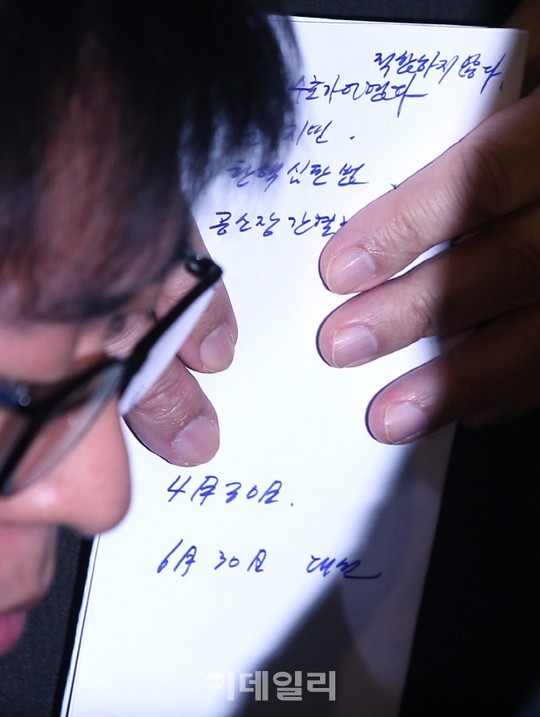 적합하지 않다.
수호가 없다
지면.
탄핵심판 범
공소장 간결
4月 30日.
6月 30日 대선
이데일리